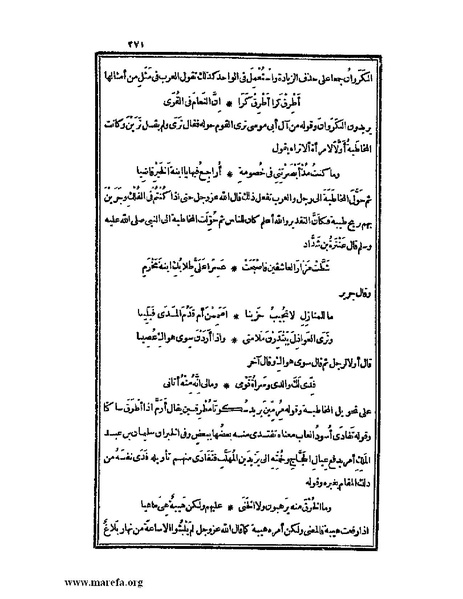 ٢٧١
الكروان جمعا على حذف الزيادة واستعمل في الواحد كذلك تقول العرب في مثل من أمثالها
أطرق كرا أطرق كرا * ان النعام في القرى
يريدون الكروان وقوله من آل أبي موسى ترى القوم حوله فقال ترى ولم يقل ترين وكانت
المخاطبة أولا لامرأة ألا تراه يقول
وما كنت مذ أبصرتني في خصومة * أراجع فيها يا ابنة الخير قاضيا
ثم حول المخاطبة الى رجل والعرب تفعل ذلك قال الله عز وجل حتى اذا كنتم في الفلك وجرين
بهم بريح طيبة فكأن التقدير والله أعلم كان للناس ثم حولت المخاطبة الى النبي صلى الله عليه
وسلم قال عنترة بن شداد
شطت مزار العاشقين فأصبحت * عسرا علي طلابك ابنة مخرم
وقال جرير
ما للمنازل لا تجيب حزينا * أصممن أم قدم المدى فبلينا
وترى العواذل يبتدرن ملامتي * واذا أردن سوى هواك عصينا
قال أولا لرجل ثم قال سوى هواك وقال آخر
فدى لك والدي وسراة قومي * ومالي انه منه أتاني
على تحويل المخاطبة وقوله مرمين يريد سكوتا مطرقين يقال أرم اذا أطرق ساكتا
وقوله تفادى أسود الغاب معناه تفتدي منه بعضها ببعض وفي الخبر ان سليمان بن عبد
الملك أمر بدفع عيال الحجاج ولحمته الى يزيد بن المهلب فتفادى منهم تأويله فدى نفسه من
ذلك المقام بغيره وقوله
وما الخرق منه يرهبون ولا الخنى * عليهم ولكن هيبة هي ماهيا
اذا رفعت هيبة فالمعنى ولكن أمره هيبة كما قال الله عز وجل لم يلبثوا الا ساعة من نهار بلاغ
www.marefa.org